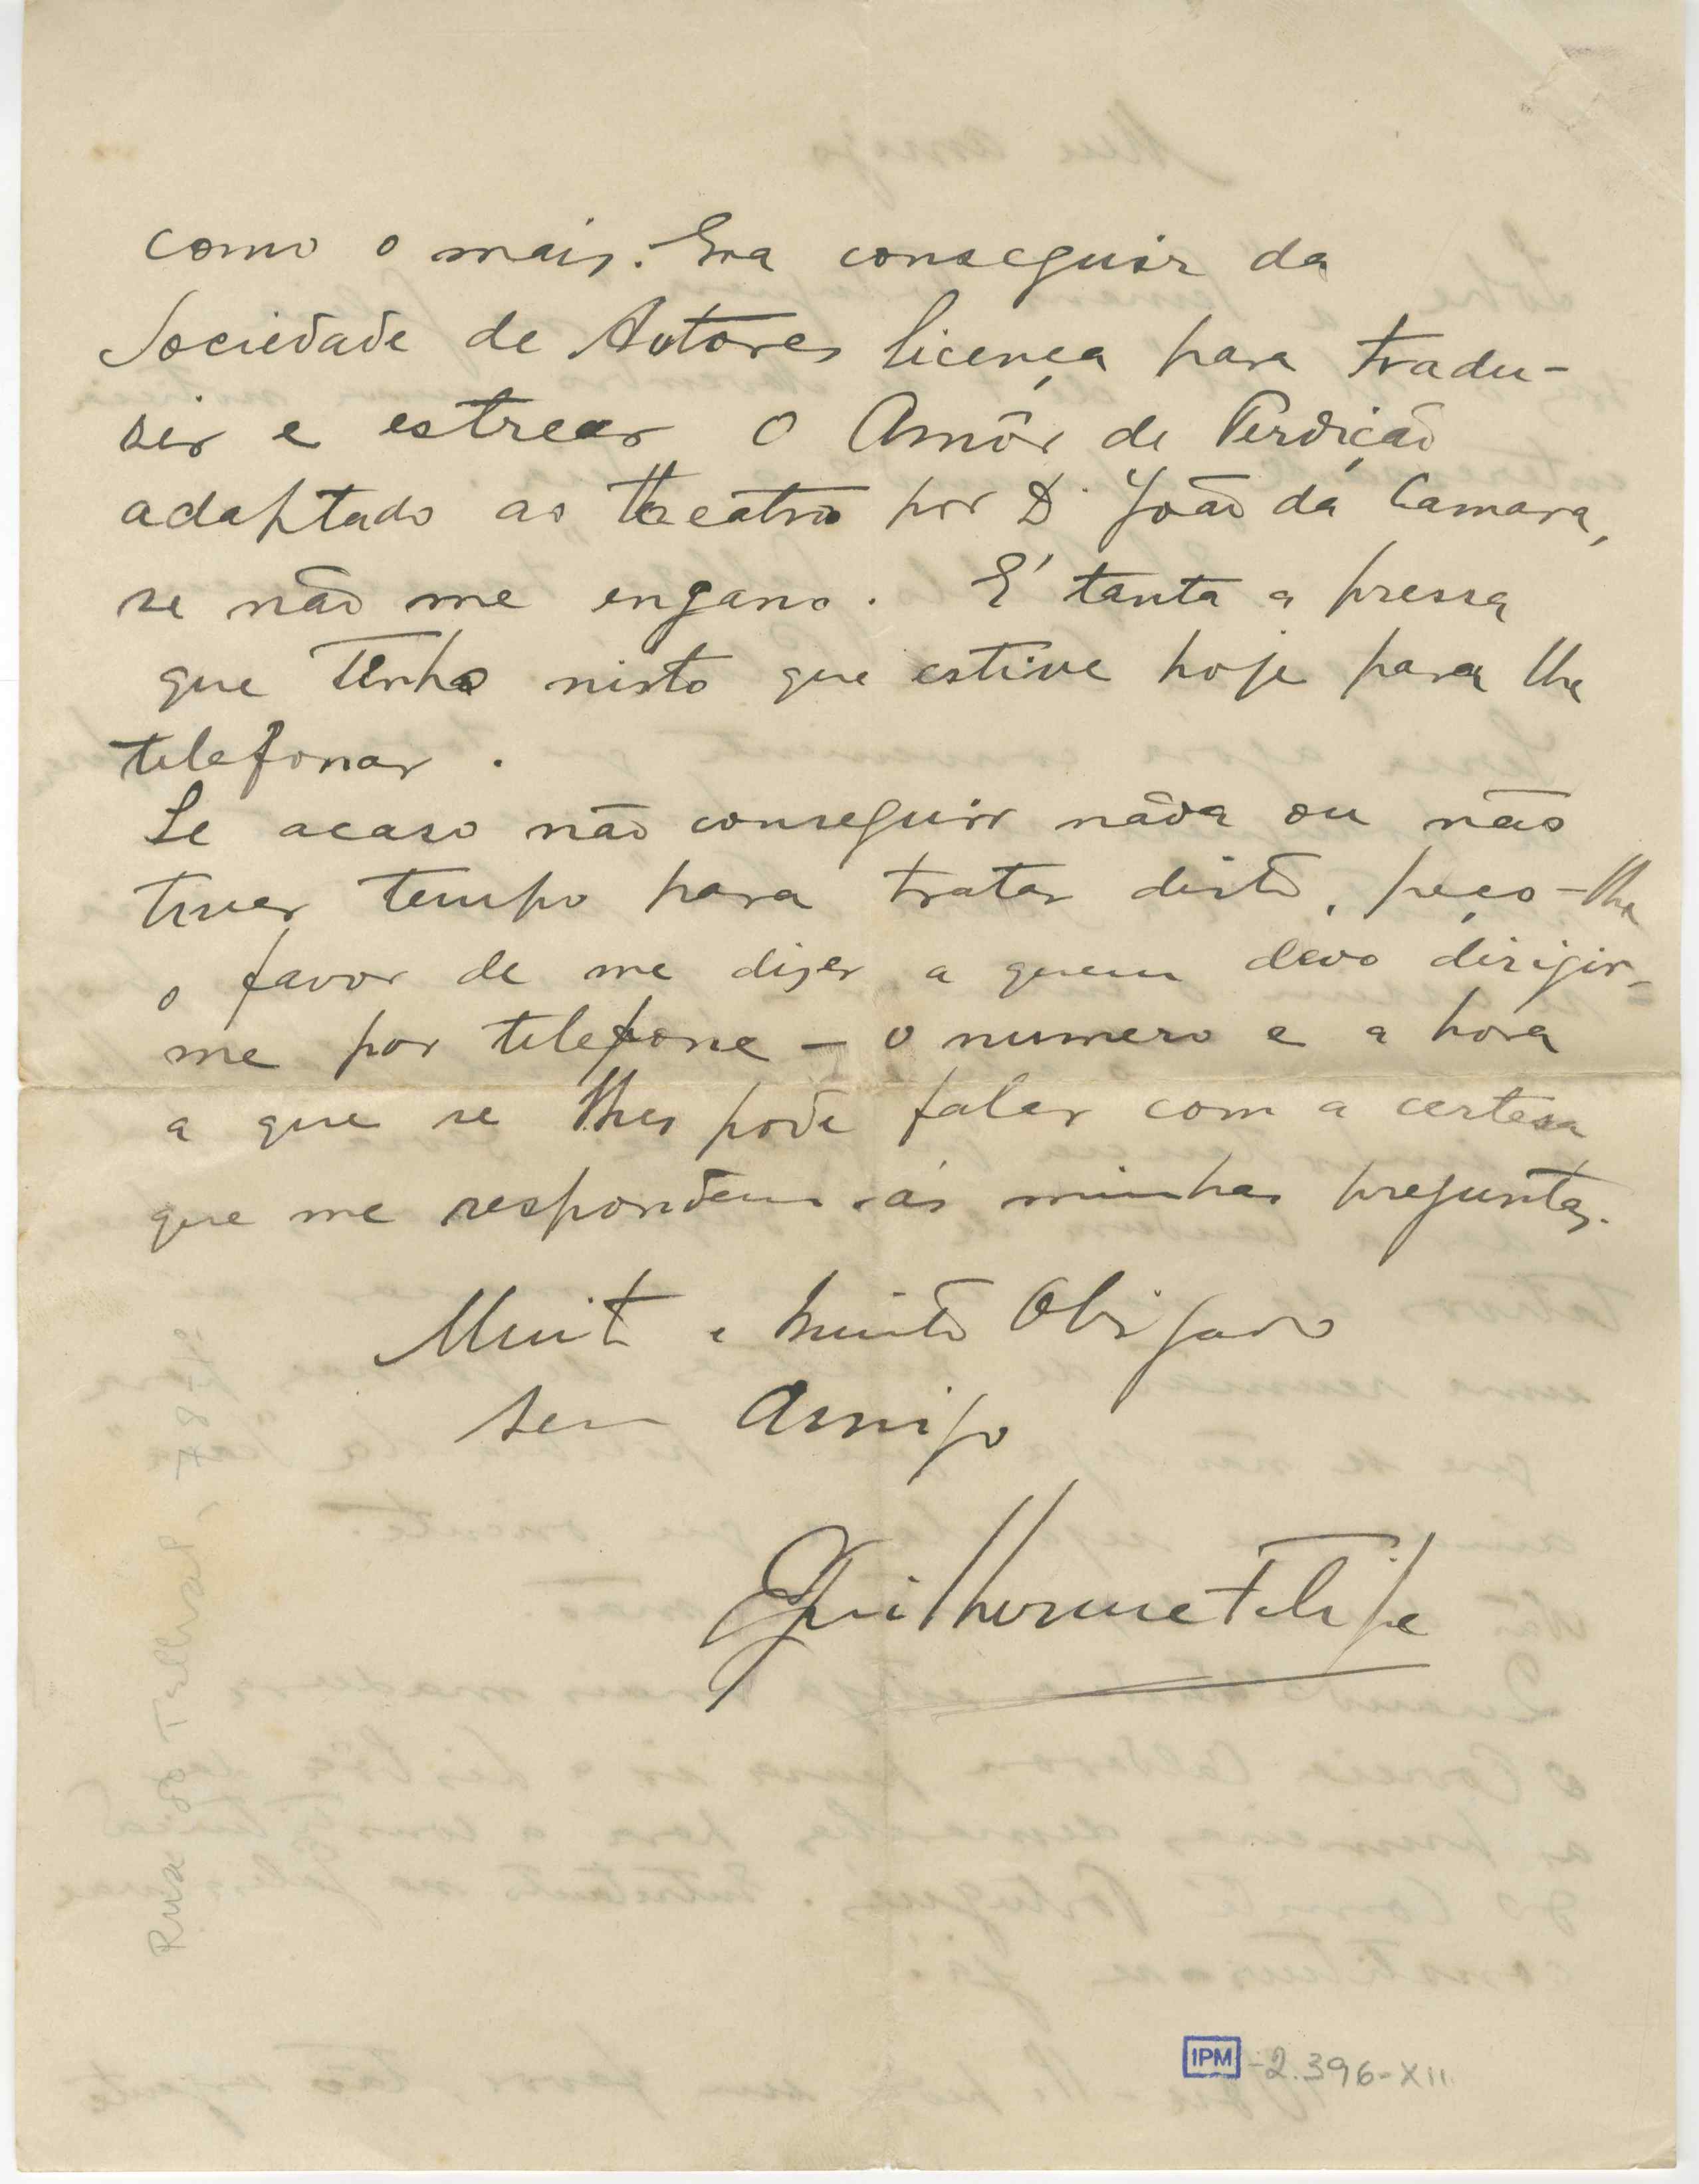 como o mais. Era conseguir da
Sociedade de Autores licença para tradu-
sir e estrear O Amôr de Perdição
adaptado ao theatro por D. João da Camara,
se não me engano. E' tanta a pressa
que tenho nisto que estive hoje para lhe
telefonar.
Se acaso não conseguir nada ou não
tiver tempo para tratar disto, peço-lhe
o favor de me dizer a quem devo dirigir-
me por telefone — o numero e a hora
a que se lhes pode falar com a certesa
que me respondem ás minhas preguntas.
Muito e muito Obrigado
seu Amigo
Guilherme Filipe
Rua do Telhal, 78 4º.
IPM -2.396-XII